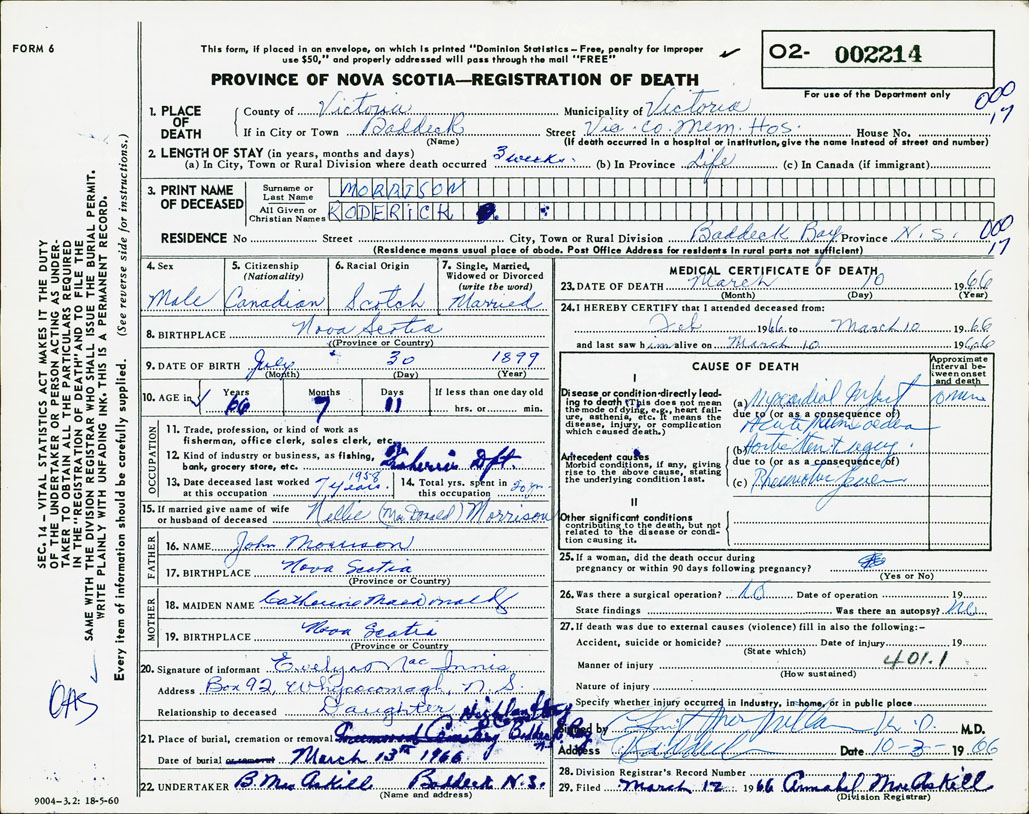 FORM 6
This form, if placed in an envelope, on which is printed "Dominion Statistics – Free, penalty for improper
use $50," and properly addressed will pass through the mail "FREE"
O2- 002214
For use of the Department only
PROVINCE OF NOVA SCOTIA—REGISTRATION OF DEATH
000
17
1. PLACE OF DEATH
County of Victoria Municipality of Victoria
If in City or Town Baddeck Street Vic. Co. Mem. Hos. House No.
(Name) (If death occurred in a hospital or institution, give the name instead of street and number)
2. LENGTH OF STAY (in years, months and days)
(a) In City, Town or Rural Division where death occurred 3 weeks (b) In Province Life (c) In Canada (if immigrant)
3. PRINT NAME OF DECEASED
Surname or Last Name MORRISON
All Given or Christian Names RODERICK
RESIDENCE No Street City, Town or Rural Division Baddeck Bay Province N.S.
000
17
(Residence means usual place of abode. Post Office Address for residents in rural parts not sufficient)
4. Sex
Male
5. Citizenship
(Nationality)
Canadian
6. Racial Origin
Scotch
7. Single, Married,
Widowed or Divorced
(write the word)
Married
8. BIRTHPLACE Nova Scotia
(Province or Country)
9. DATE OF BIRTH July 30 1899
(Month) (Day) (Year)
10. AGE in
Years
66
Months
7
Days
11
If less than one day old
hrs. or min.
OCCUPATION
11. Trade, profession, or kind of work as
fisherman, office clerk, sales clerk, etc.
12. Kind of industry or business, as fishing,
bank, grocery store, etc. Fisheries Dpt.
13. Date deceased last worked
at this occupation 7 years 1958
14. Total yrs. spent in
this occupation
15. If married give name of wife
or husband of deceased Nellie (MacDonald) Morrison
FATHER
16. NAME John Morrison
17. BIRTHPLACE Nova Scotia
(Province or Country)
MOTHER
18. MAIDEN NAME Catherine MacDonald
19. BIRTHPLACE Nova Scotia
(Province or Country)
20. Signature of informant Evelyn MacInnis
Address Box 92, Whycocomagh, N.S.
Relationship to deceased Daughter
21. Place of burial, cremation or removal Baddeck Bay
N.S.
Date of burial or removal March 13th 1966
22. UNDERTAKER B. MacAskill Baddeck N.S.
(Name and address)
MEDICAL CERTIFICATE OF DEATH
23. DATE OF DEATH March 10 1966
(Month) (Day) (Year)
24. I HEREBY CERTIFY that I attended deceased from:
Feb 1966 to March 10 1966
and last saw him alive on March 10 1966
CAUSE OF DEATH
Approximate
interval between onset
and death
I
Disease or condition directly leading to death (This does not mean
the mode of dying, e.g., heart failure, asthenia, etc. It means the
disease, injury, or complication
which caused death.)
(a) Myocardial Infarct
due to (or as a consequence of)
Acute
Antecedent causes
Morbid conditions, if any, giving
rise to the above cause, stating
the underlying condition last.
(b)
due to (or as a consequence of)
(c) Rheumatic fever
II
Other significant conditions
contributing to the death, but not
related to the disease or condition causing it.
25. If a woman, did the death occur during
pregnancy or within 90 days following pregnancy?
(Yes or No)
26. Was there a surgical operation? No Date of operation 19
State findings Was there an autopsy? No
27. If death was due to external causes (violence) fill in also the following:—
Accident, suicide or homicide? Date of injury 19
(State which)
Manner of injury 401.1
(How sustained)
Nature of injury
Specify whether injury occurred in industry, in home, or in public place
Signed by M.D.
Address Baddeck Date 10-3- 1966
28. Division Registrar's Record Number
29. Filed March 12 1966 Annabel MacAskill
(Division Registrar)
SEC. 14 – VITAL STATISTICS ACT MAKES IT THE DUTY
OF THE UNDERTAKER OR PERSON ACTING AS UNDERTAKER TO OBTAIN ALL THE PARTICULARS REQUIRED
IN THE "REGISTRATION OF DEATH" AND TO FILE THE
SAME WITH THE DIVISION REGISTRAR WHO SHALL ISSUE THE BURIAL PERMIT.
WRITE PLAINLY WITH UNFADING INK. THIS IS A PERMANENT RECORD.
Every item of information should be carefully supplied. (See reverse side for instructions.)
OAS
9004-3.2: 18-5-60